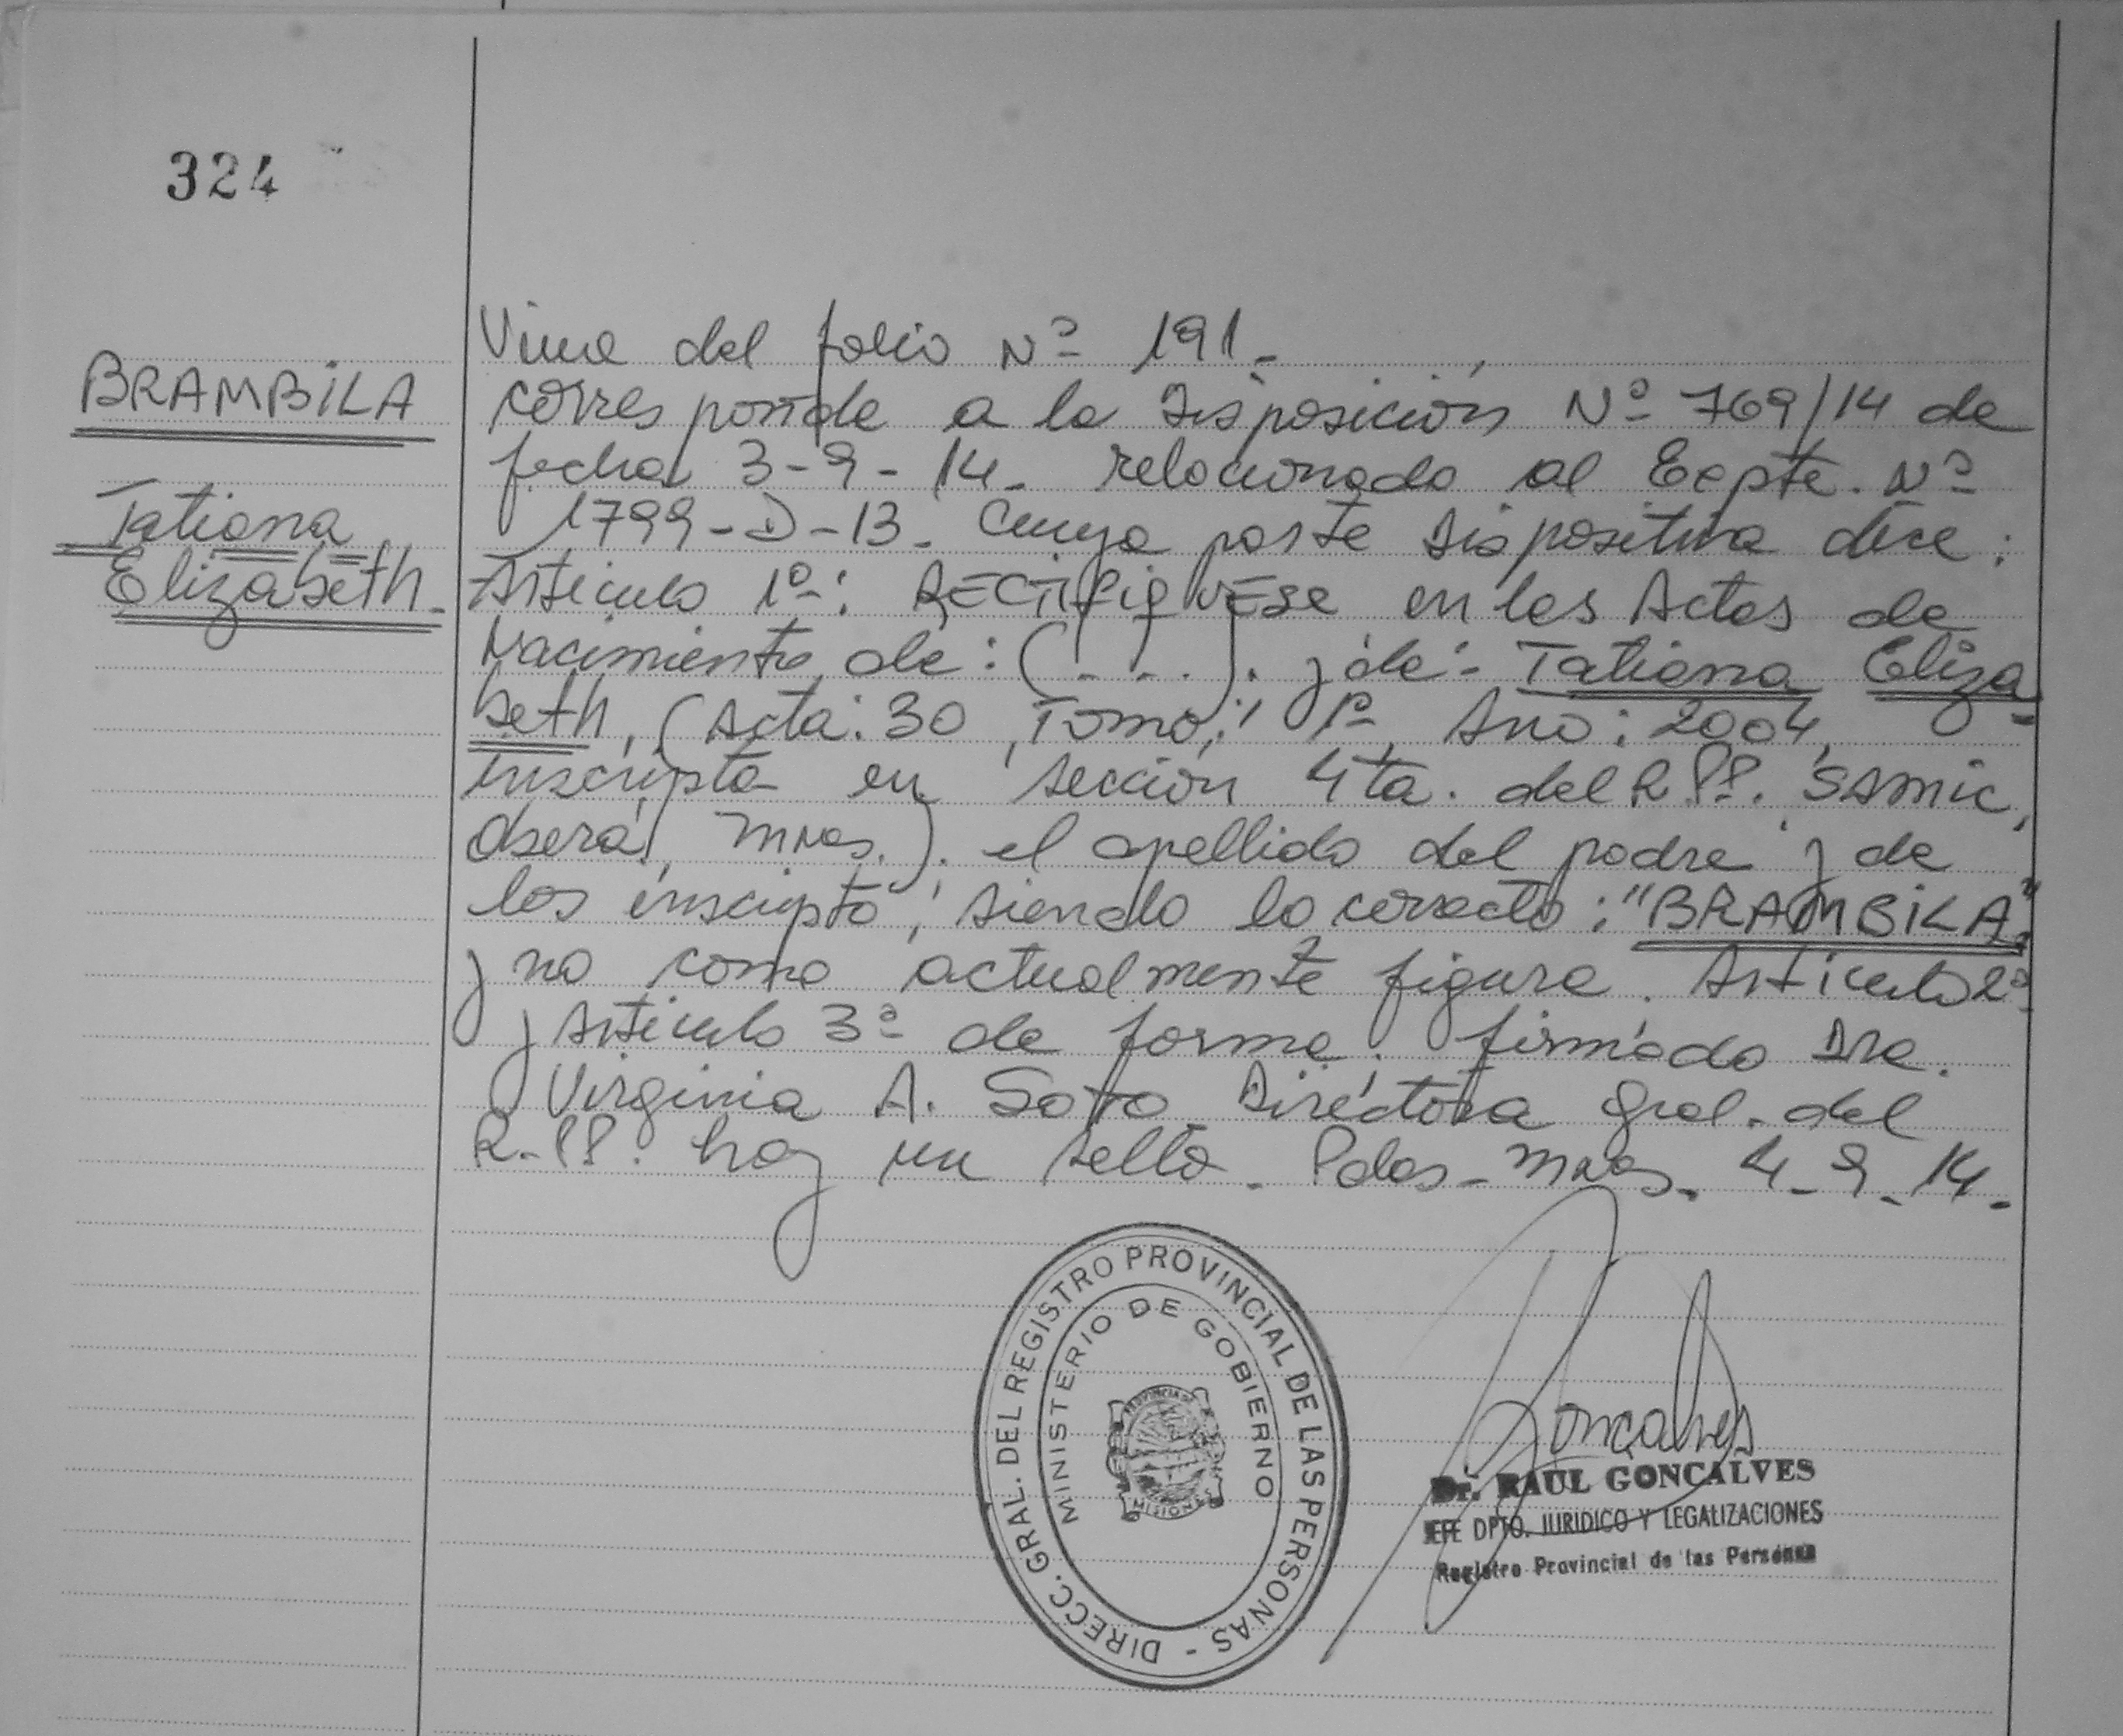 324
BRAMBILA
Tatiana
Elizabeth.
Viene del folio Nº 191.
corresponde a la Disposición Nº 769/14 de
fecha 3-9-14. relacionado al Expte. Nº
1799-D-13. Cuya parte dispositiva dice:
Articulo 1º: RECTIFIQUESE en las Actas de
Nacimiento de: (. . .). y de: Tatiana Eliza
beth, (Acta: 30, Tomo: 1º, Año: 2004,
inscripta en sección 4ta. del R.P.P. SAMIC,
Oberá, Mnes.). el apellido del padre y de
los inscripto, siendo lo correcto: "BRAMBILA"
y no como actualmente figura. Artículo 2º
y Articulo 3º de forma. firmado Dra.
Virginia A. Soto Directora Gral. del
R.P.P. hay un sello. Pdas-Mnes. 4-9-14.
DIRECC. GRAL. DEL REGISTRO PROVINCIAL DE LAS PERSONAS -
MINISTERIO DE GOBIERNO
PROVINCIA
MISIONES
Goncalves
Dr. RAUL GONCALVES
JEFE DPTO. JURIDICO Y LEGALIZACIONES
Registro Provincial de las Personas